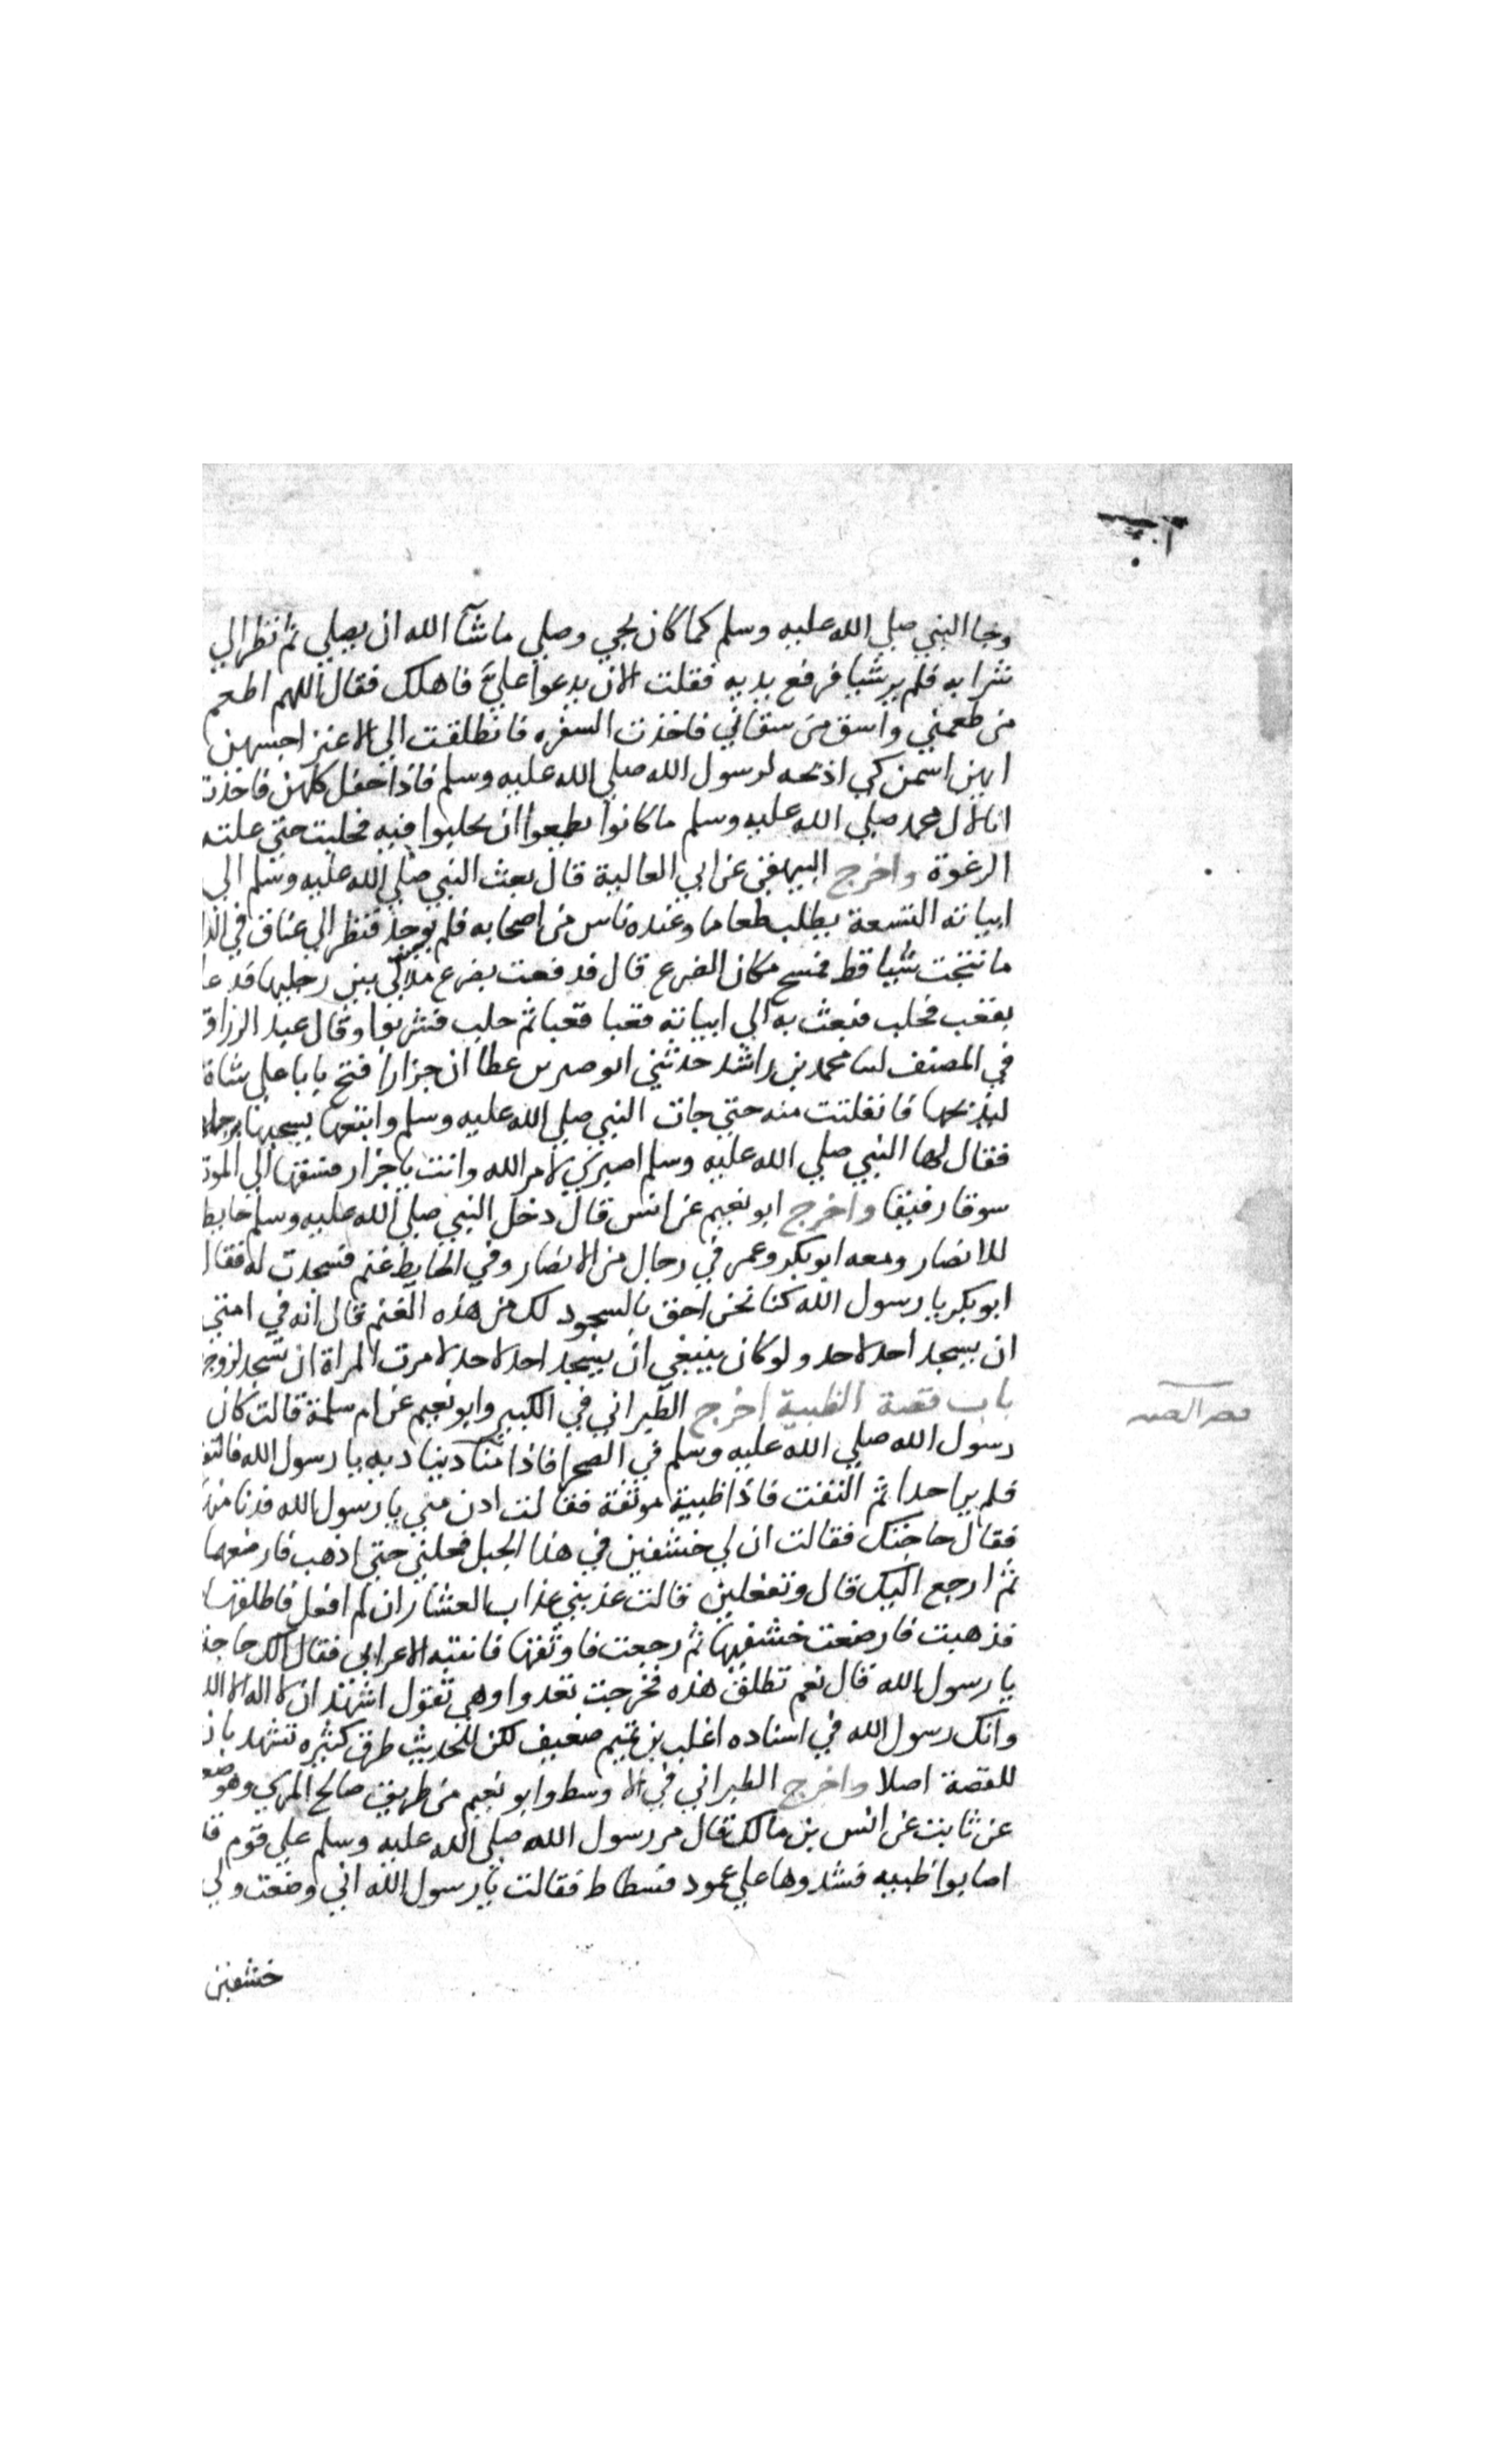 وجا النبي صلي الله عليه وسلم كما كان يجي وصلي ما شآ الله ان يصلي ثم نظر الي
شرابه فلم ير شيا فرفع يديه فقلت الان يدعوا عليّ فاهلك فقال اللهم اطعم
من طعمني واسق من سقاني فاخذت السفره فانطلقت الي الاعنز اجسهن
ايهن اسمن كي اذبحه لرسول الله صلي الله عليه وسلم فاذا حفل كلهن فاخذت
انا لال محمد صلي الله عليه وسلم ما كانوا يطمعوا ان يحلبوا فيه فحلبت حتي علته
الرغوة واخرج البيهقي عن ابي العالية قال بعث النبي صلي الله عليه وسلم الي
ابياته التسعة يطلب طعاما وعنده ناس من اصحابه فلم يوجد فنظر الي عناق في
ما نتجت شيا قط فمسح مكان الضرع قال فدفعت بضرع بين رجليها فد
بقعب فحلب فبعث به الي ابياته قعبا قعبا ثم حلب فشربوا وقال عبد الرزاق
في المصنف محمد بن راشد حدثني عطا ان جزارا فتح بابا علي شاة
ليذبحها فانفلتت منه حتي جات النبي صلي الله عليه وسلم واتبعها يسحبها برجلها
فقال لها النبي صلي الله عليه وسلم اصبري لامر الله وانت يا جزار فسقها الي الموت
سوقا رفيقا واخرج ابو نعيم عن انس قال دخل النبي صلي الله عليه وسلم حايط
للانصار ومعه ابو بكر وعمر في رجال من الانصار وفي الحايط غنم فسجدت له فقال
ابو بكر يا رسول الله كنا نحن احق بالسجود لك من هذه الغنم قال انه في امتي
ان يسجد احد لاحد ولو كان ينبغي ان يسجد احد لاحد لامرت المراة ان تسجد لزوج
باب قصة الظبية اخرج الطبراني في الكبير وابو نعيم عن ام سلمة قالت كان
رسول الله صلي الله عليه وسلم في الصحرا فاذا مناد يناديه يا رسول الله فالتف
فلم ير احدا ثم التفت فاذا ظبية موثقة فقالت ادن مني يا رسول الله فدنا منها
فقال حاجتك فقالت ان لي خشفين في هذا الجبل فحلني حتي اذهب فارضعهما
ثم ارجع اليك قال وتفعلين قالت عذبني عذاب العشار ان لم افعل فاطلقها
فذهبت فارضعت خشفيها ثم رجعت فاوثقها فانتبه الاعرابي فقال الك حاجة
يا رسول الله قال نعم تطلق هذه فخرجت تعدوا وهي تقول اشهد ان لا اله الا الله
وانك رسول الله في اسناده اغلب بن تميم ضعيف لكن للحديث طرق كثيره تشهد بان
للقصة اصلا واخرج الطبراني في الاوسط وابو نعيم من طريق صالح المري وهو
عن ثابت عن انس بن مالك قال مر رسول الله صلي الله عليه وسلم علي قوم
اصابوا ظبيه فشدوها علي عمود فسطاط فقالت يا رسول الله اني وضعت ولي
خشفين